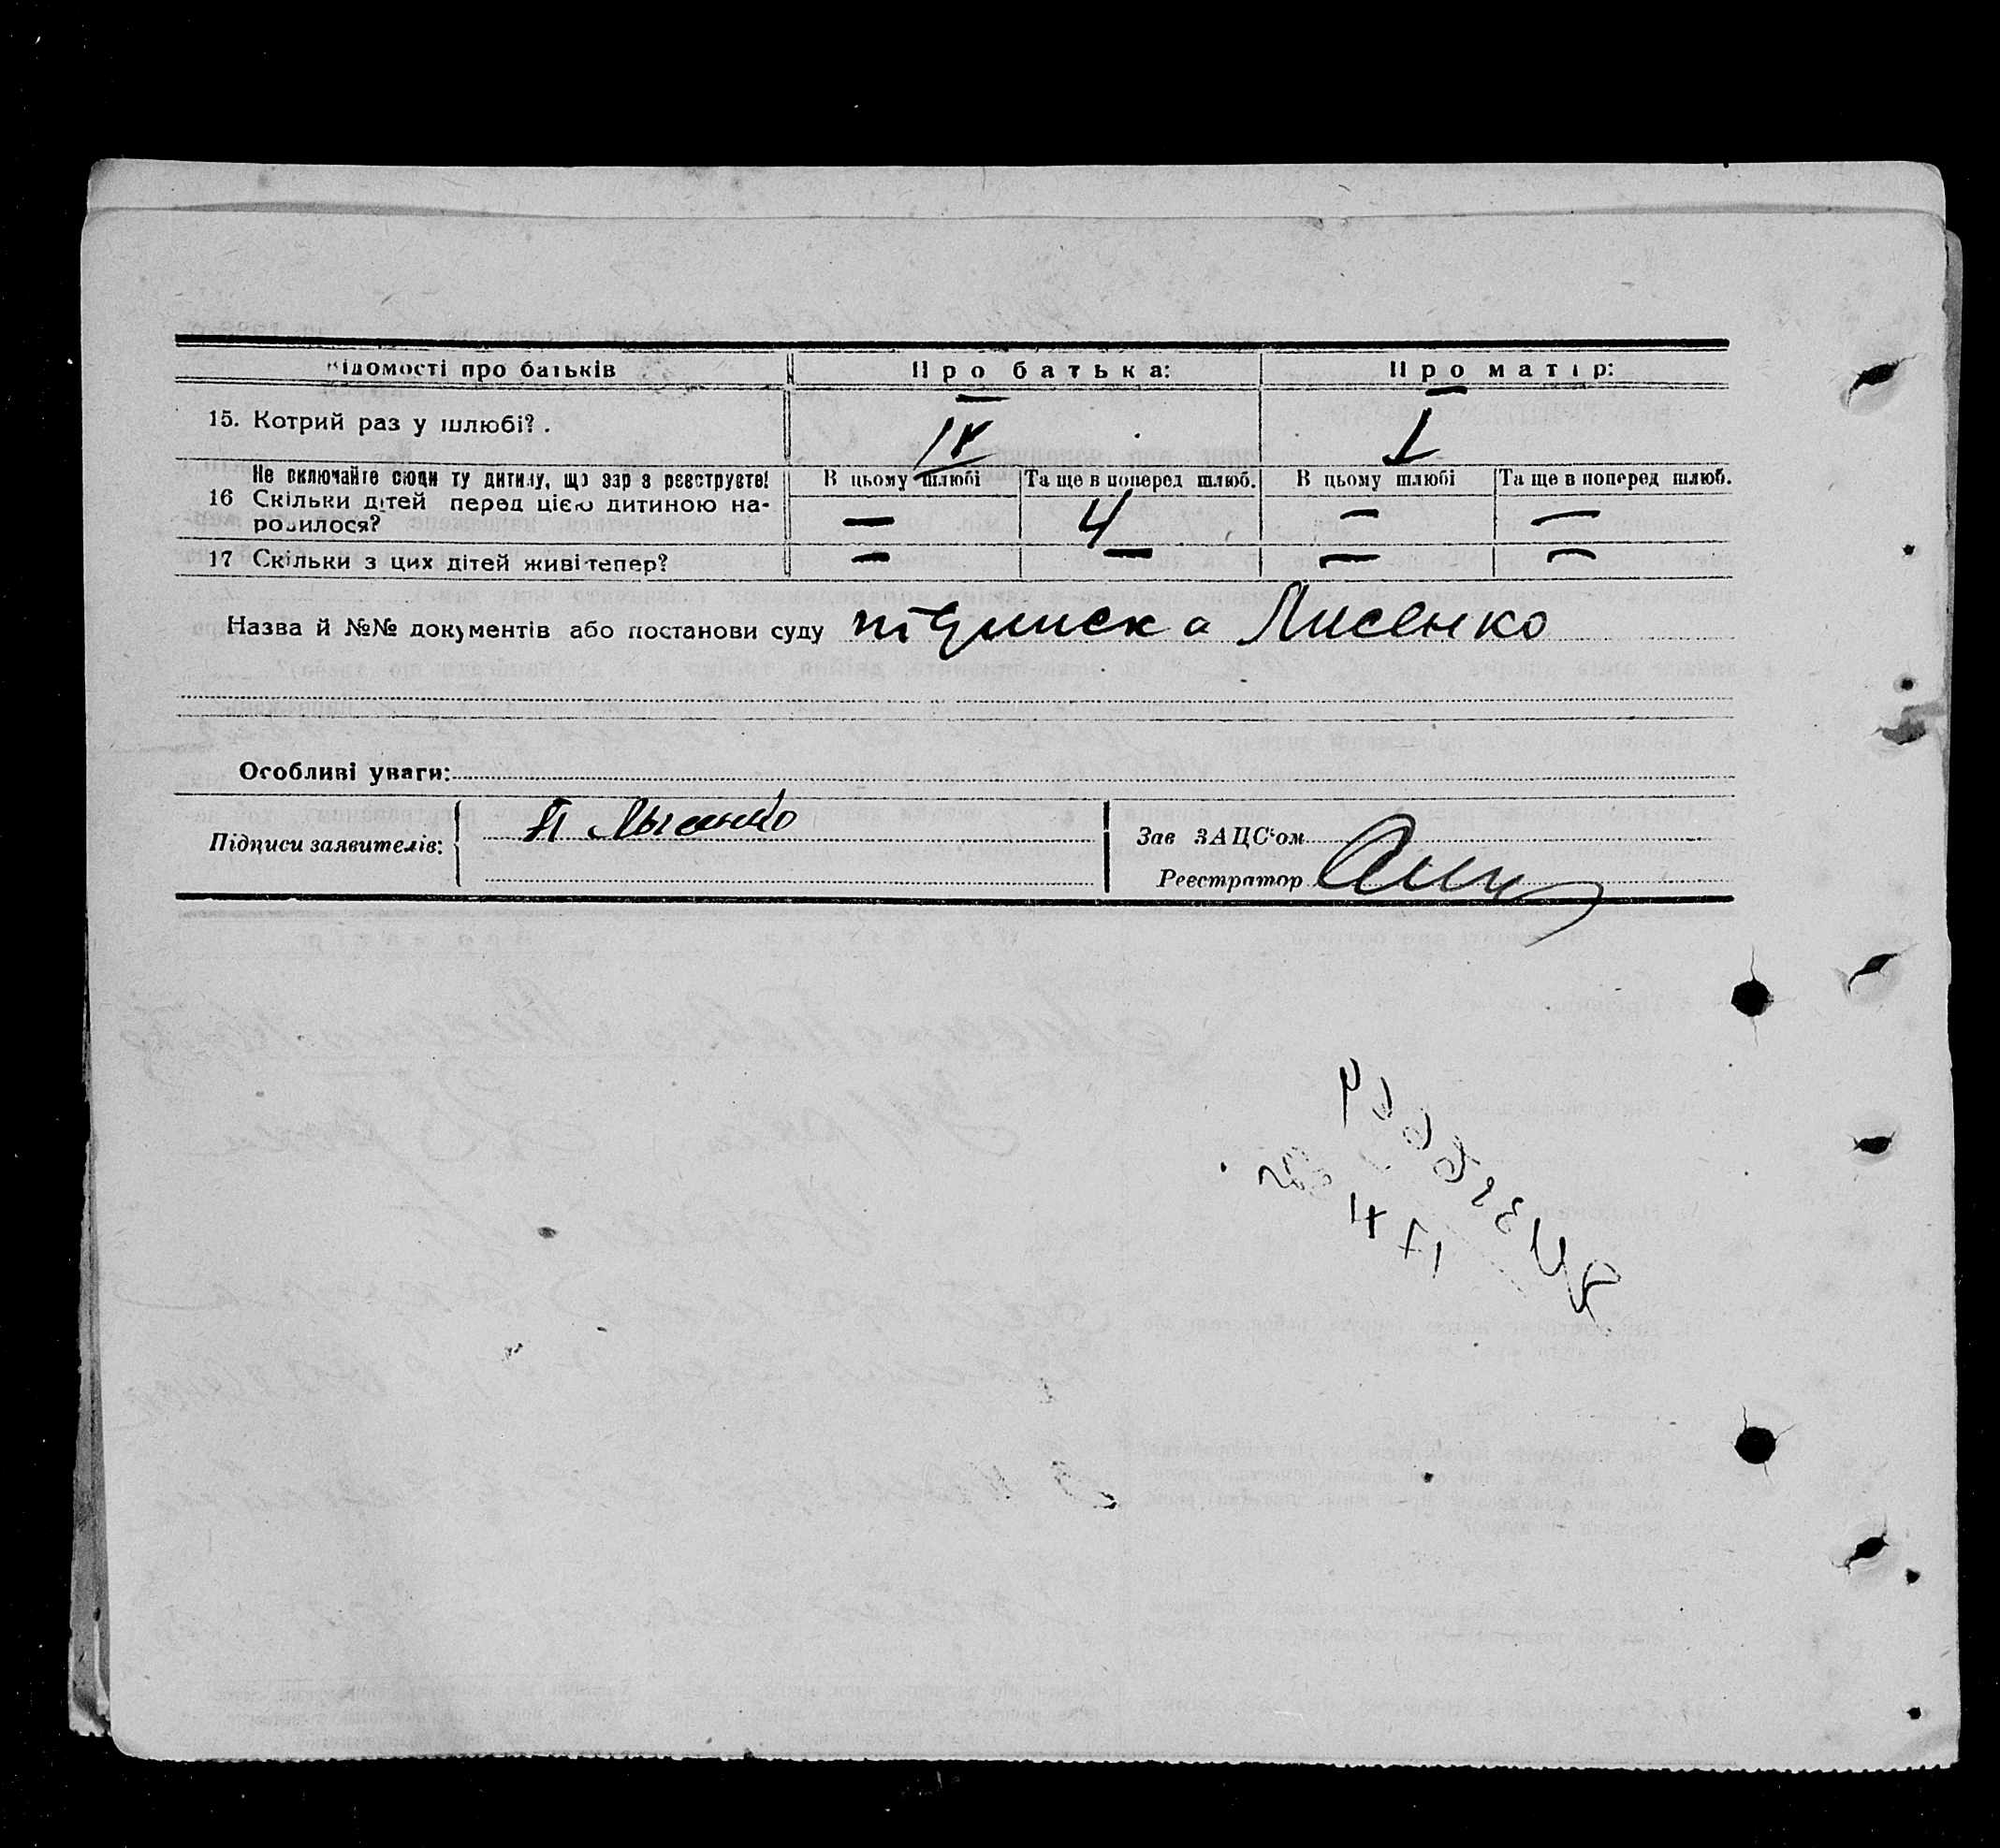 Відомості про батьків Про батька: Про матір:
15. Котрий раз у шлюбі? . IV I
Не включайте сюди ту дитину, що зараз реєструєте! В цьому шлюбі Та ще в поперед шлюб. В цьому шлюбі Та ще в поперед шлюб.
16 Скільки дітей перед цією дитиною на-
родилося? — 4 — —
17 Скільки з цих дітей живі тепер? — — — —
Назва й №№ документів або постанови суду підписка Лисенко
Особливі уваги:
Підписи заявителів: П Лысенко
Зав ЗАЦС'ом
Реєстратор